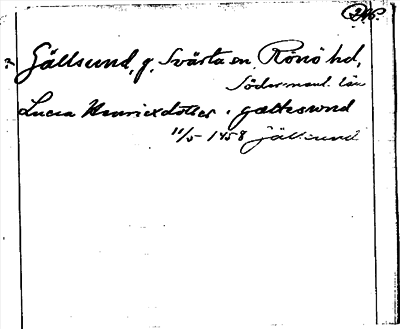 246.
Gällsund, g. Svärta sn. Rönö hd,
Södermanl. län
Lucia Henrixdotter i gælteswnd
11/5 1458 Jällsund